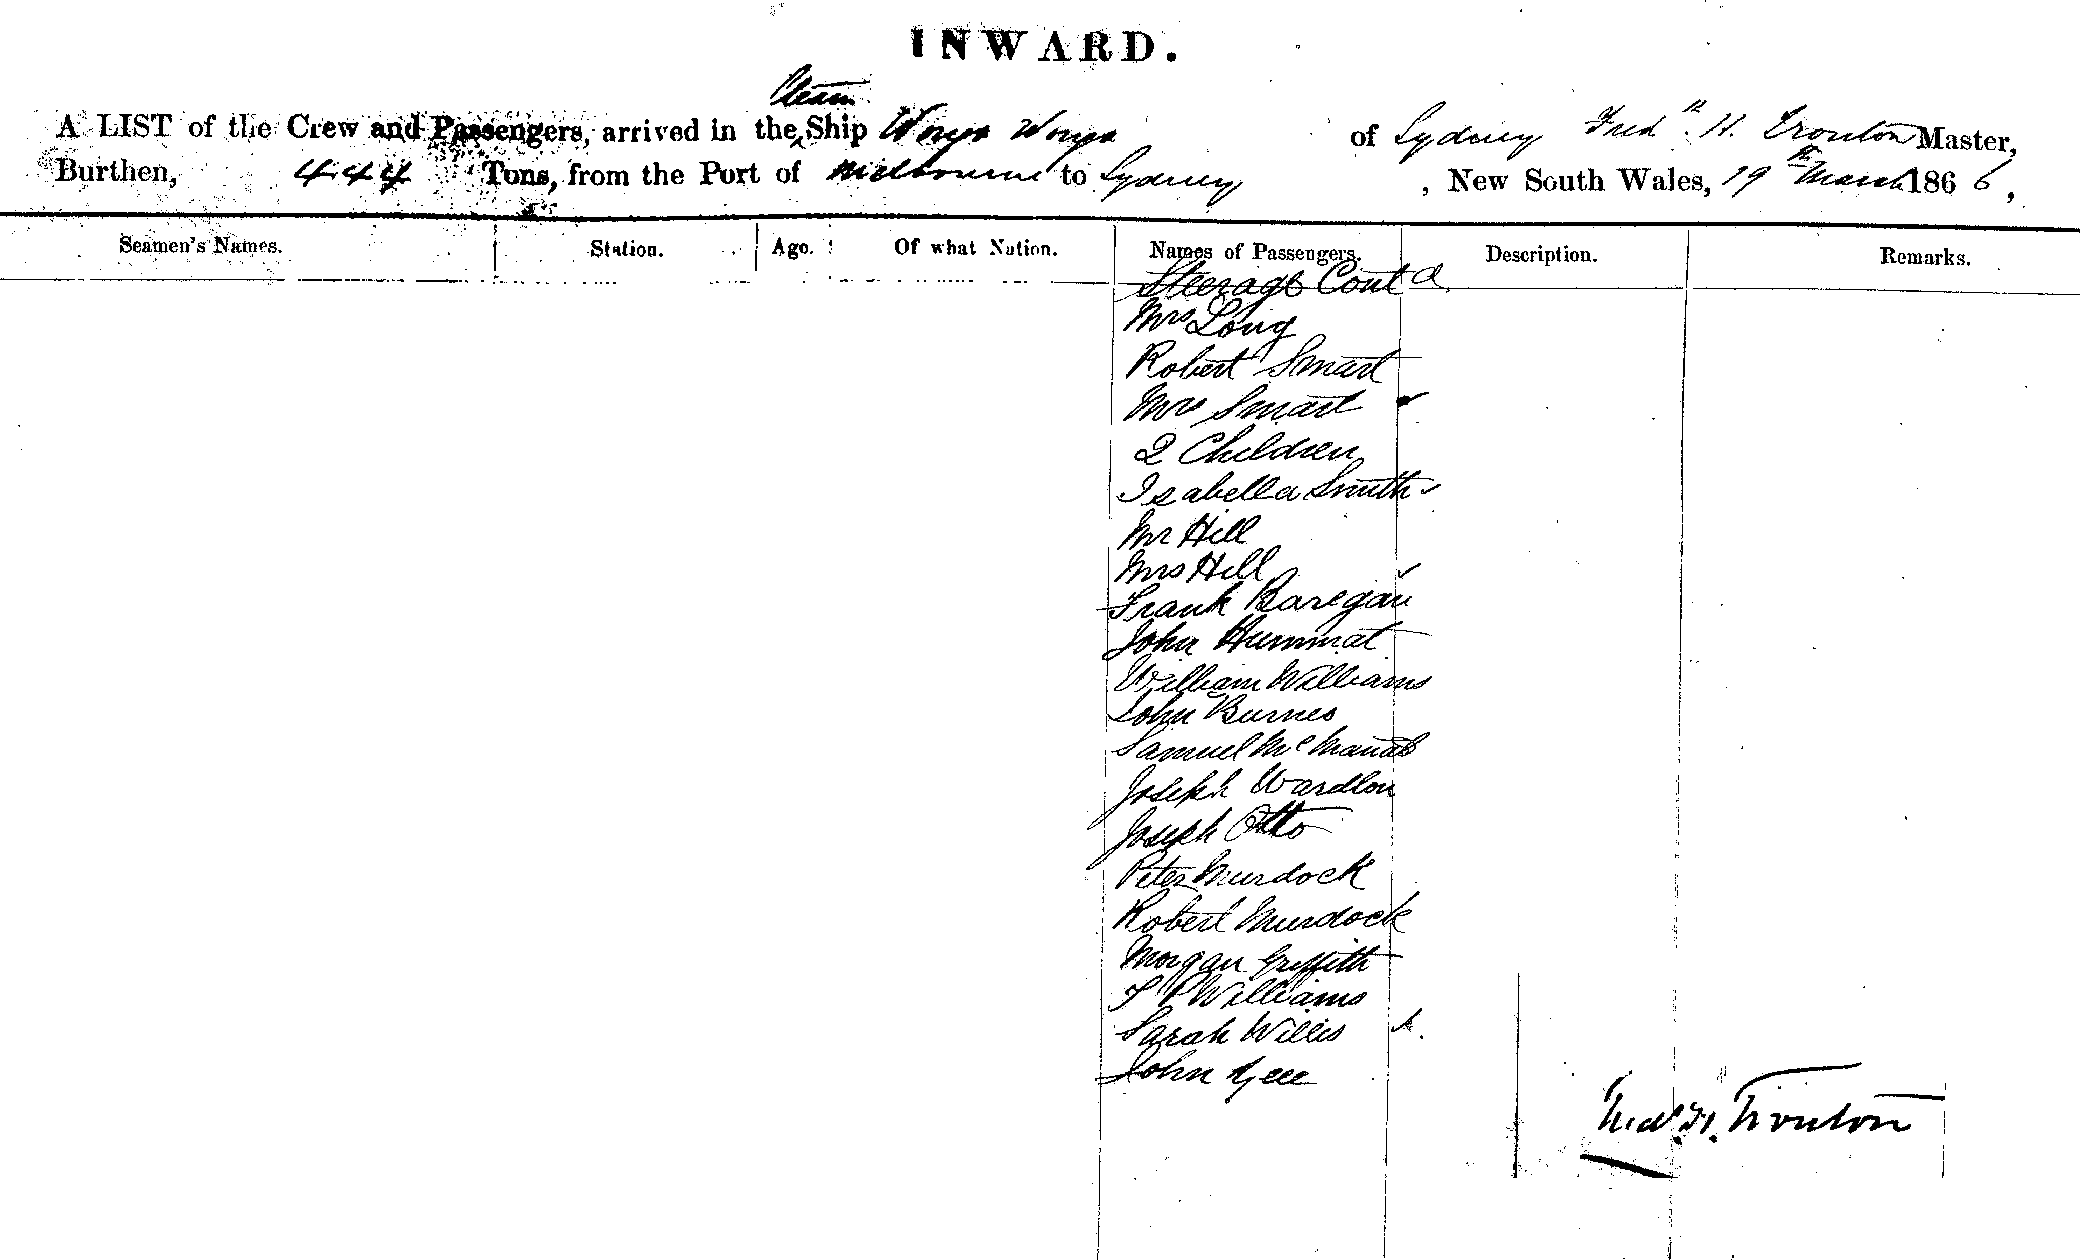 INWARD.
Steam
A LIST of the Crew and Passengers, arrived in the Ship Wonga Wonga of Sydney Fredk. H. Trouton Master,
Burthen, 444 Tons, from the Port of Melbourne to Sydney , New South Wales, 19th March 1866,
Seamen's Names. Station. Age. Of what Nation. Names of Passengers. Description. Remarks.
Steerage Contd
Mrs Long
Robert Smart
Mrs Smart
2 Children
Isabella Smith
Mr Hill
Mrs Hill
Frank Baregan
John Hummat
William Williams
John Burnes
Samuel McManab
Joseph Wardlow
Joseph Otto
Peter Murdock
Robert Murdock
Morgan Griffith
T P Williams
Sarah Willis
John Gee
Fredk. H. Trouton